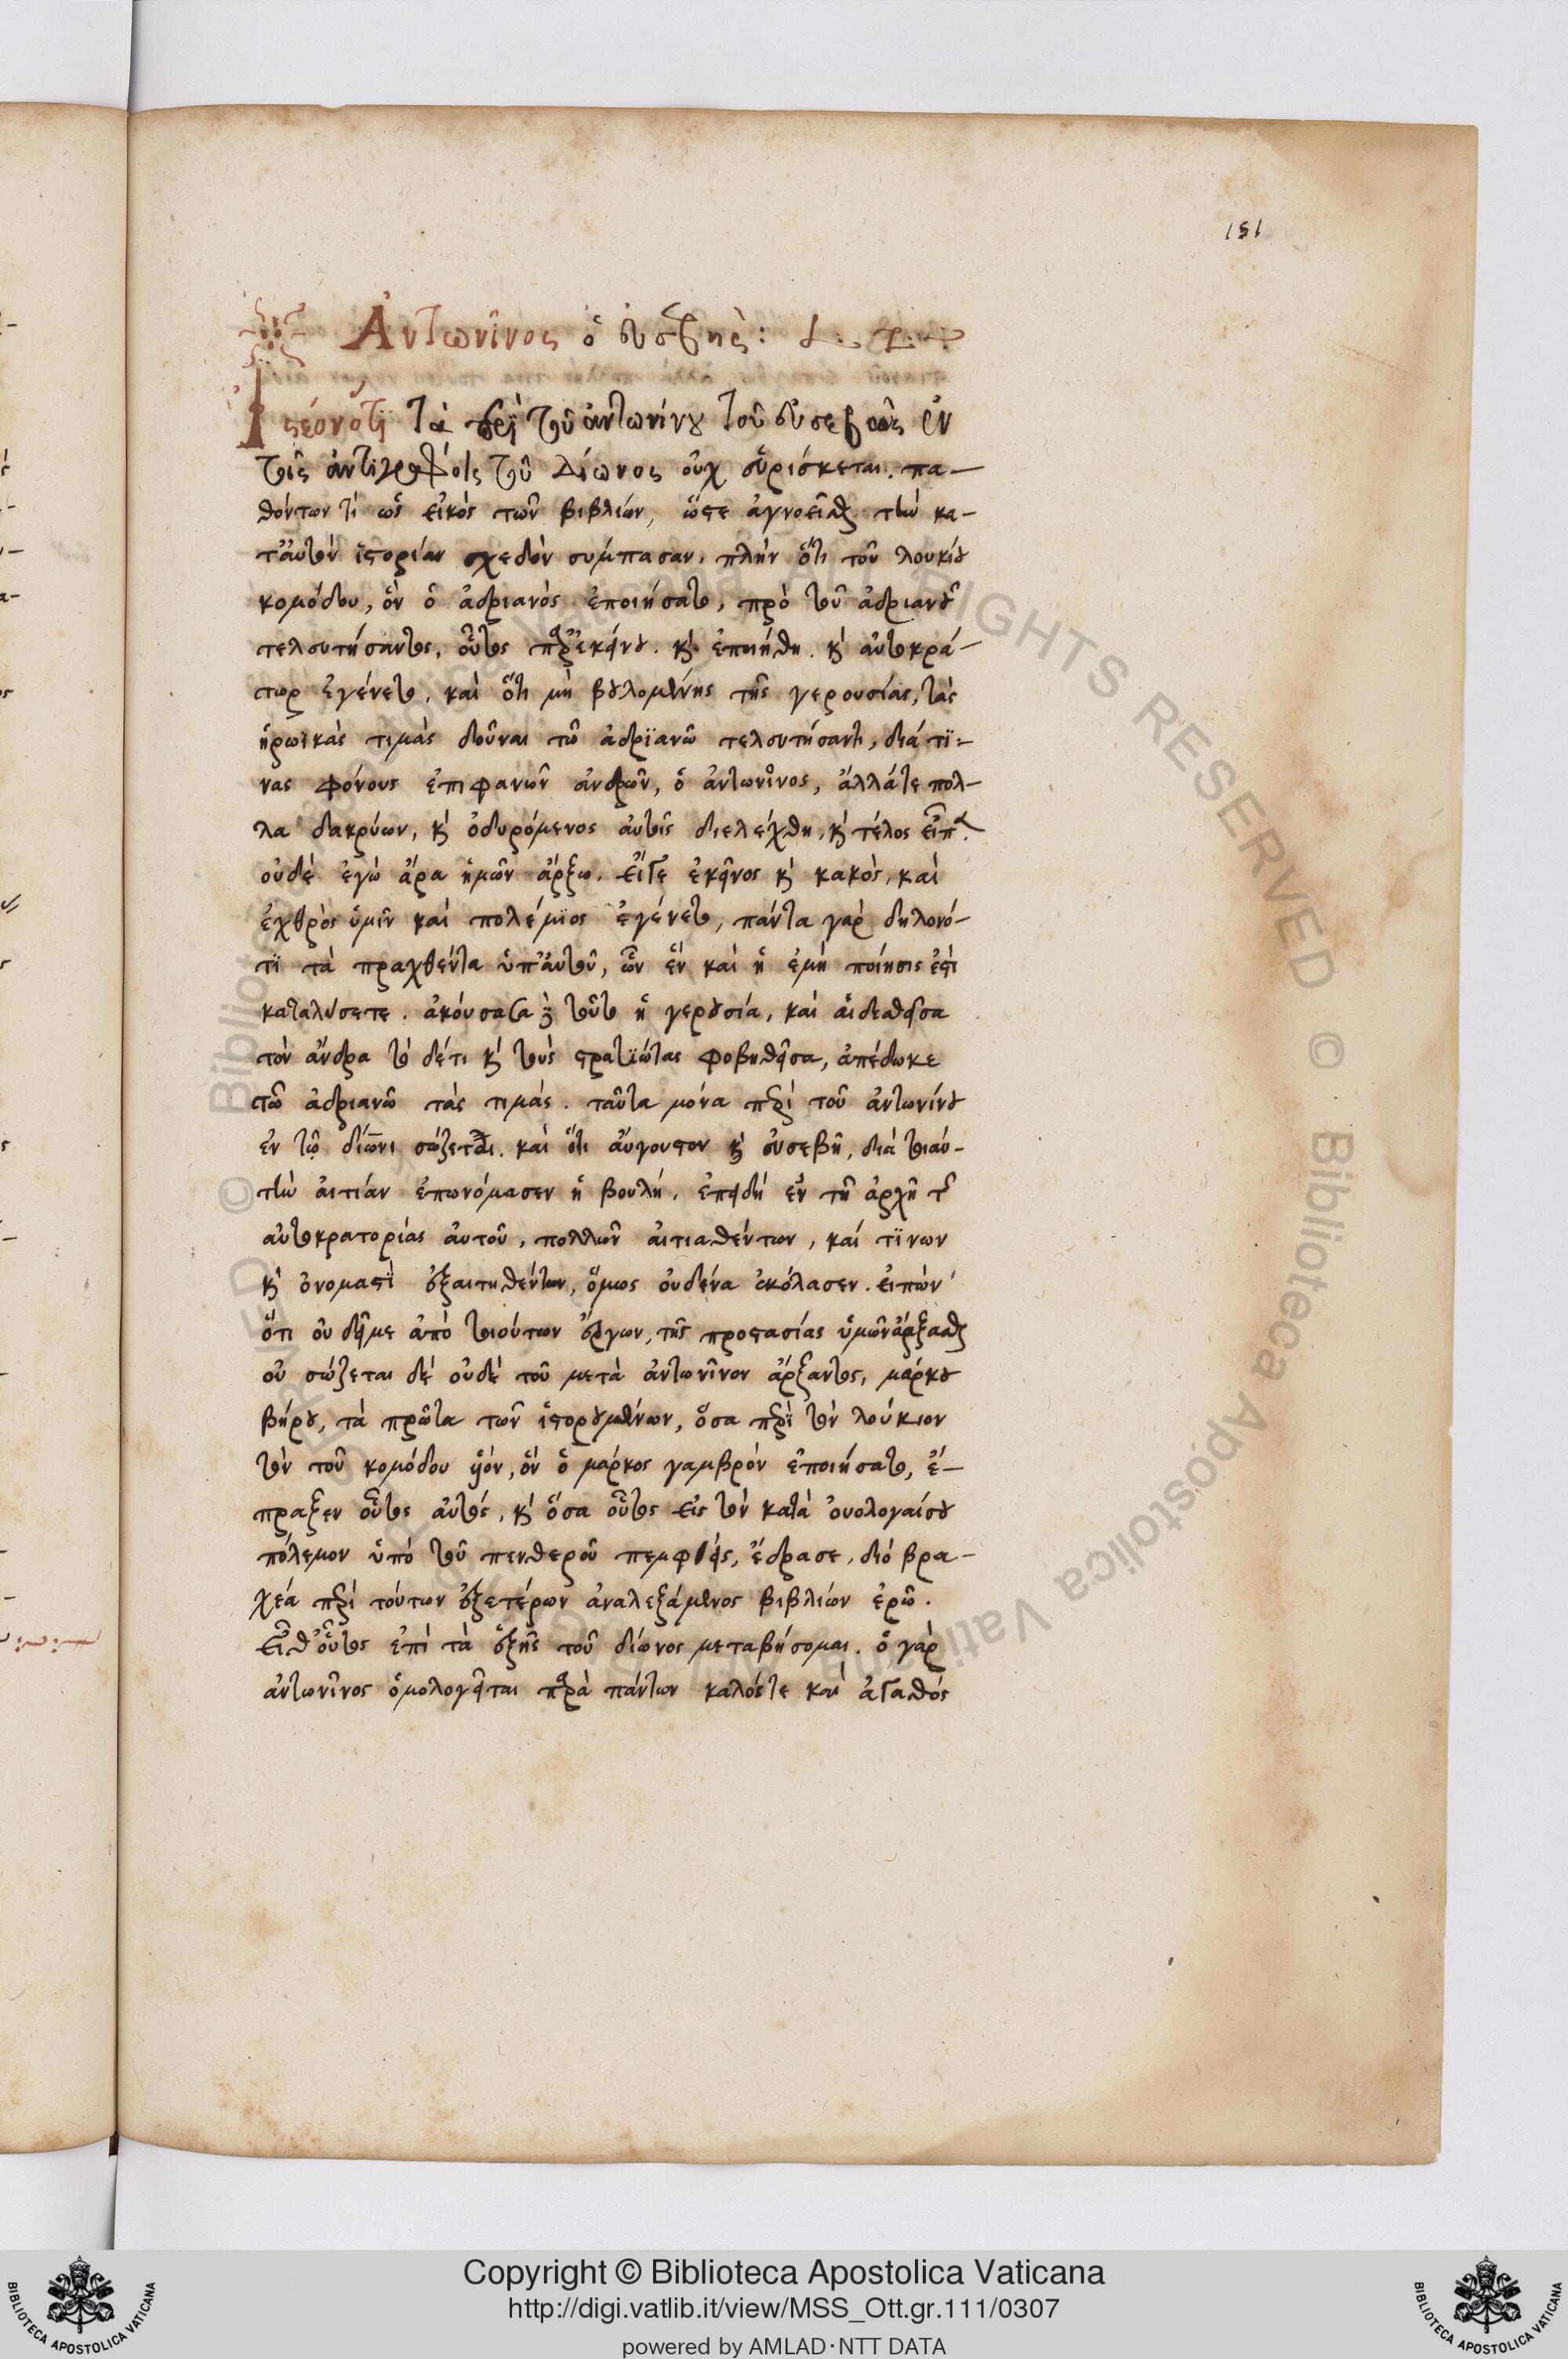 151
Ἀντωνῖνος ὁ εὐσεβὴς:
Ἰστέον ὅτι τὰ περὶ τοῦ ἀντωνίνου τοῦ εὐσεβοῦς ἐν
τοῖς ἀντιγράφοις τοῦ Δίωνος οὐχ εὑρίσκεται. πα-
θόντων τὶ ὡς εἰκὸς τῶν βιβλίων, ὥστε ἀγνοεῖσθαι τὴν κα-
τ' αὐτὸν ἱστορίαν σχεδὸν σύμπασαν. πλὴν ὅτι τοῦ λουκίου
κομόδου, ὃν ὁ ἀδριανὸς ἐποιήσατο, πρὸ τοῦ ἀδριανοῦ
τελευτήσαντος, οὗτος παρ' ἐκείνου. καὶ ἐποιήθη. καὶ αὐτοκρά-
τωρ ἐγένετο. καὶ ὅτι μὴ βουλομένης τῆς γερουσίας, τὰς
ἡρωϊκὰς τιμὰς δοῦναι τῶ ἀδρϊανῶ τελευτήσαντι, διά τϊ-
νας φόνους ἐπιφανῶν ἀνδρῶν, ὁ ἀντωνῖνος, ἄλλάτε πολ-
λα δακρύων, καὶ ὀδυρόμενος αὐτοῖς διελέχθη, καὶ τέλος εἶπε.
οὐδὲ ἐγὼ ἄρα ἡμῶν ἄρξω. εἴγε ἐκεῖνος καὶ κακὸς, καὶ
ἐχθρὸς ὑμῖν καὶ πολέμϊος ἐγένετο, πάντα γὰρ δηλονό-
τϊ τὰ πραχθέντα ὑπ' αὐτοῦ, ὧν ἓν καὶ ἡ ἐμὴ ποίησις ἐστὶ
καταλύσετε. ἀκούσασα δὲ τοῦτο ἡ γερουσία, καὶ αἰδεσθεῖσα
τὸν ἄνδρα τὸ δέτι καὶ τοὺς στρατϊώτας φοβηθεῖσα, ἀπέδωκε
τῶ ἀδριανῶ τὰς τιμάς. ταῦτα μόνα περὶ τοῦ ἀντωνίνου
ἐν τῷ δίωνι σώζεται. καὶ ὅτι αὔγουστον καὶ εὐσεβῆ, διὰ τοιαύ-
την αἰτίαν ἐπωνόμασεν ἡ βουλή. ἐπειδὴ ἐν τῆ ἀρχῆ τῆς
αὐτοκρατορίας αὐτοῦ, πολλῶν αἰτιαθέντων, καί τϊνων
καὶ ὀνομαστϊ ἐξαιτηθέντων, ὅμως οὐδένα ἐκόλασεν. εἰπὼν
ὅτι οὐ δεῖμε ἀπὸ τοιούτων ἔργων, τῆς προστασίας ὑμῶν ἄρξασθαι
οὐ σώζεται δὲ οὐδὲ τοῦ μετὰ ἀντωνῖνον ἄρξαντος, μάρκου
βήρου, τὰ πρῶτα τῶν ἱστορουμένων, ὅσα περὶ τὸν λούκιον
τὸν τοῦ κομόδου υἱόν, ὃν ὁ μάρκος γαμβρὸν ἐποιήσατο, ἔ-
πραξεν οὗτος αὐτός, καὶ ὅσα οὗτος εἰς τὸν κατὰ οὐολογαίσου
πόλεμον ὑπὸ τοῦ πενθεροῦ πεμφθείς, ἔδρασε, διὸ βρα-
χέα περὶ τούτων ἐξετέρων ἀναλεξάμενος βιβλίων ἐρῶ.
εἶθ' οὕτως ἐπὶ τὰ ἑξῆς τοῦ δίωνος μεταβήσομαι. ὁ γὰρ
ἀντωνῖνος ὁμολογεῖται παρὰ πάντων καλόςτε καὶ ἀγαθός
Copyright © Biblioteca Apostolica Vaticana
http://digi.vatlib.it/view/MSS_Ott.gr.111/0307
powered by AMLAD·NTT DATA